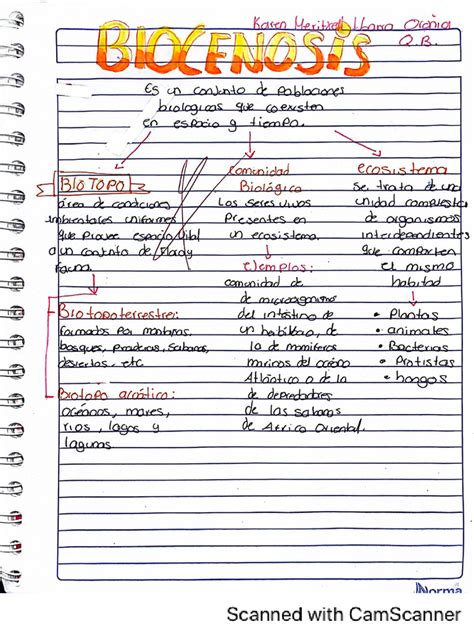 Karen Meritzell Ibarra Osonia
Q.B.
BIOCENOSIS
Es un conjunto de Poblaciones
biologicas que coexisten
en espacio y tiempo.
BIOTOPO
área de condiciones
ambientales uniformes
que Provee espacio vital
a un conjunto de Flora y
fauna.
Biotopo terrestre:
formados Por montañas,
bosques, Praderas, Sabanas,
desiertos, etc
Biotopo acuático:
océanos, mares,
rios, lagos y
lagunas
Comunidad
Biológica
Los seres vivos
Presentes en
un ecosistema.
ejemplos:
comunidad de
de microorganismo
del intestino de
un habitano, de
la de mamiferos
marinos del océano
Atlántico o de la
de depredadores
de las sabanas
de Africa Oriental.
ecosistema
Se trata de una
unidad compuesta
de organismos
interdependientes
que comparten
el mismo
habitad
• Plantas
• animales
• Bacterias
• Protistas
• hongos
Norma
Scanned with CamScanner